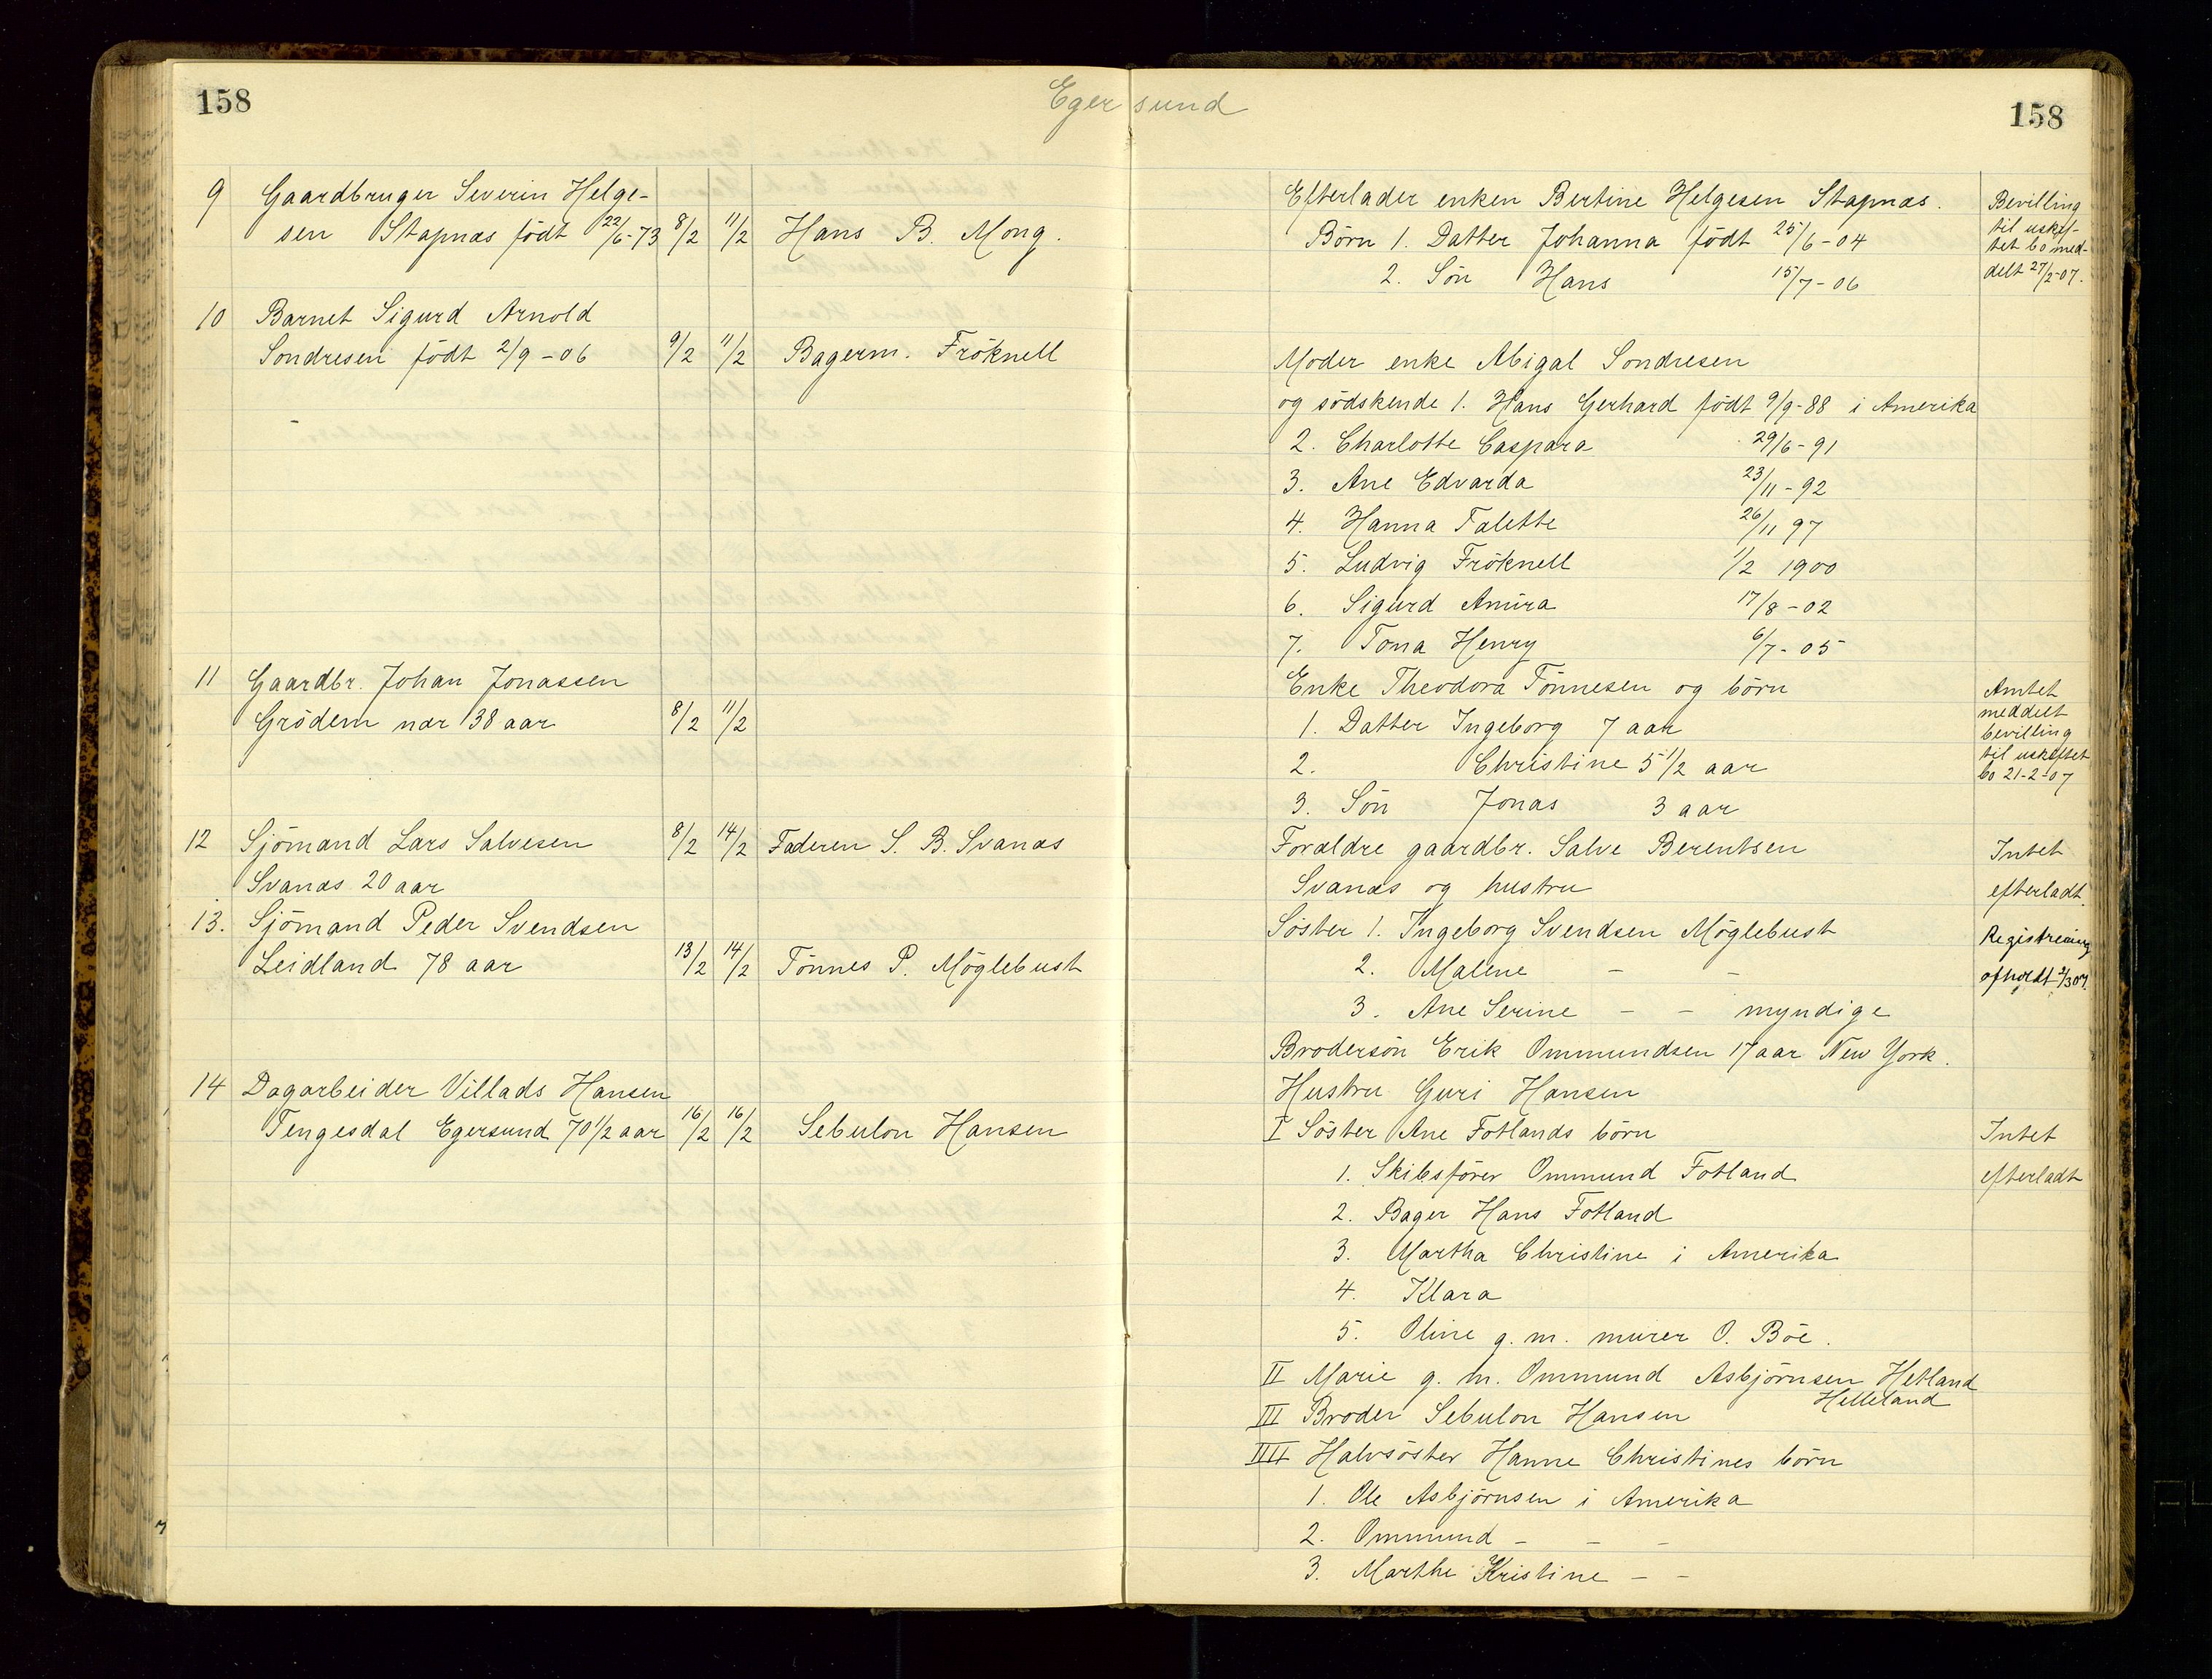 158
Egersund
158
9 Gaardbruger Severin Helge-
sen Stapnæs født 22/6-73 8/2 11/2 Hans B. Mong.
10 Barnet Sigurd Arnold
Sondresen født 2/9-06 9/2 11/2 Bagerm. Fröknell
11 Gaardbr. Johan Jonassen
Grödem nær 38 aar 8/2 11/2
12 Sjömand Lars Salvesen 8/2 14/2 Faderen S. B. Svanæs
Svanæs 20 aar
13. Sjömand Peder Svendsen
Leidland 78 aar 13/2 14/2 Tönnes P. Möglebust
14 Dagarbeider Villads Hansen
Tengesdal Egersund 70 1/2 aar 16/2 16/2 Sebulon Hansen
Efterlader enken Bertine Helgesen Stapnæs.
Börn 1. Datter Johanna født 25/6-04
2. Sön Hans 15/7-06
Bevilling
til uskif-
tet bo med-
delt 27/2-07.
Moder enke Abigal Sondresen
og södskende 1. Hans Gerhard født 9/9-88 i Amerika
2. Charlotte Caspara 29/6-91
3. Ane Edvarda 23/11-92
4. Hanna Talette 26/11 97
5. Ludvig Fröknell 1/2 1900
6. Sigurd 17/8-02
7. Tona Henry 6/7-05
Enke Theodora Tönnesen og börn
1. Datter Ingeborg 7 aar
2. Christine 5 1/2 aar
3. Sön Jonas 3 aar
Amtet
meddelt
bevilling
til uskiftet
bo 21-2-07
Forældre gaardbr. Salve Berentsen
Svanæs og hustru
Intet
efterladt.
Söster 1. Ingeborg Svendsen Möglebust
2. Malene - -
3. Ane Serine - - myndige
Brodersön Erik Ommundsen 17 aar New York.
Registrering
afholdt 2/3 07.
Hustru Guri Hansen
I Söster Ane Fotlands börn
1. Skibsförer Ommund Fotland
2. Bager Hans Fotland
3. Martha Christine i Amerika
4. Klara
5. Oline g. m. murer O. Böe.
II Marie g. m. Ommund Asbjörnsen Hetland
Helleland
III Broder Sebulon Hansen
IIII Halvsöster Hanne Christines börn
1. Ole Asbjörnsen i Amerika
2. Ommund - - -
3. Marthe Kristine - -
Intet
efterladt